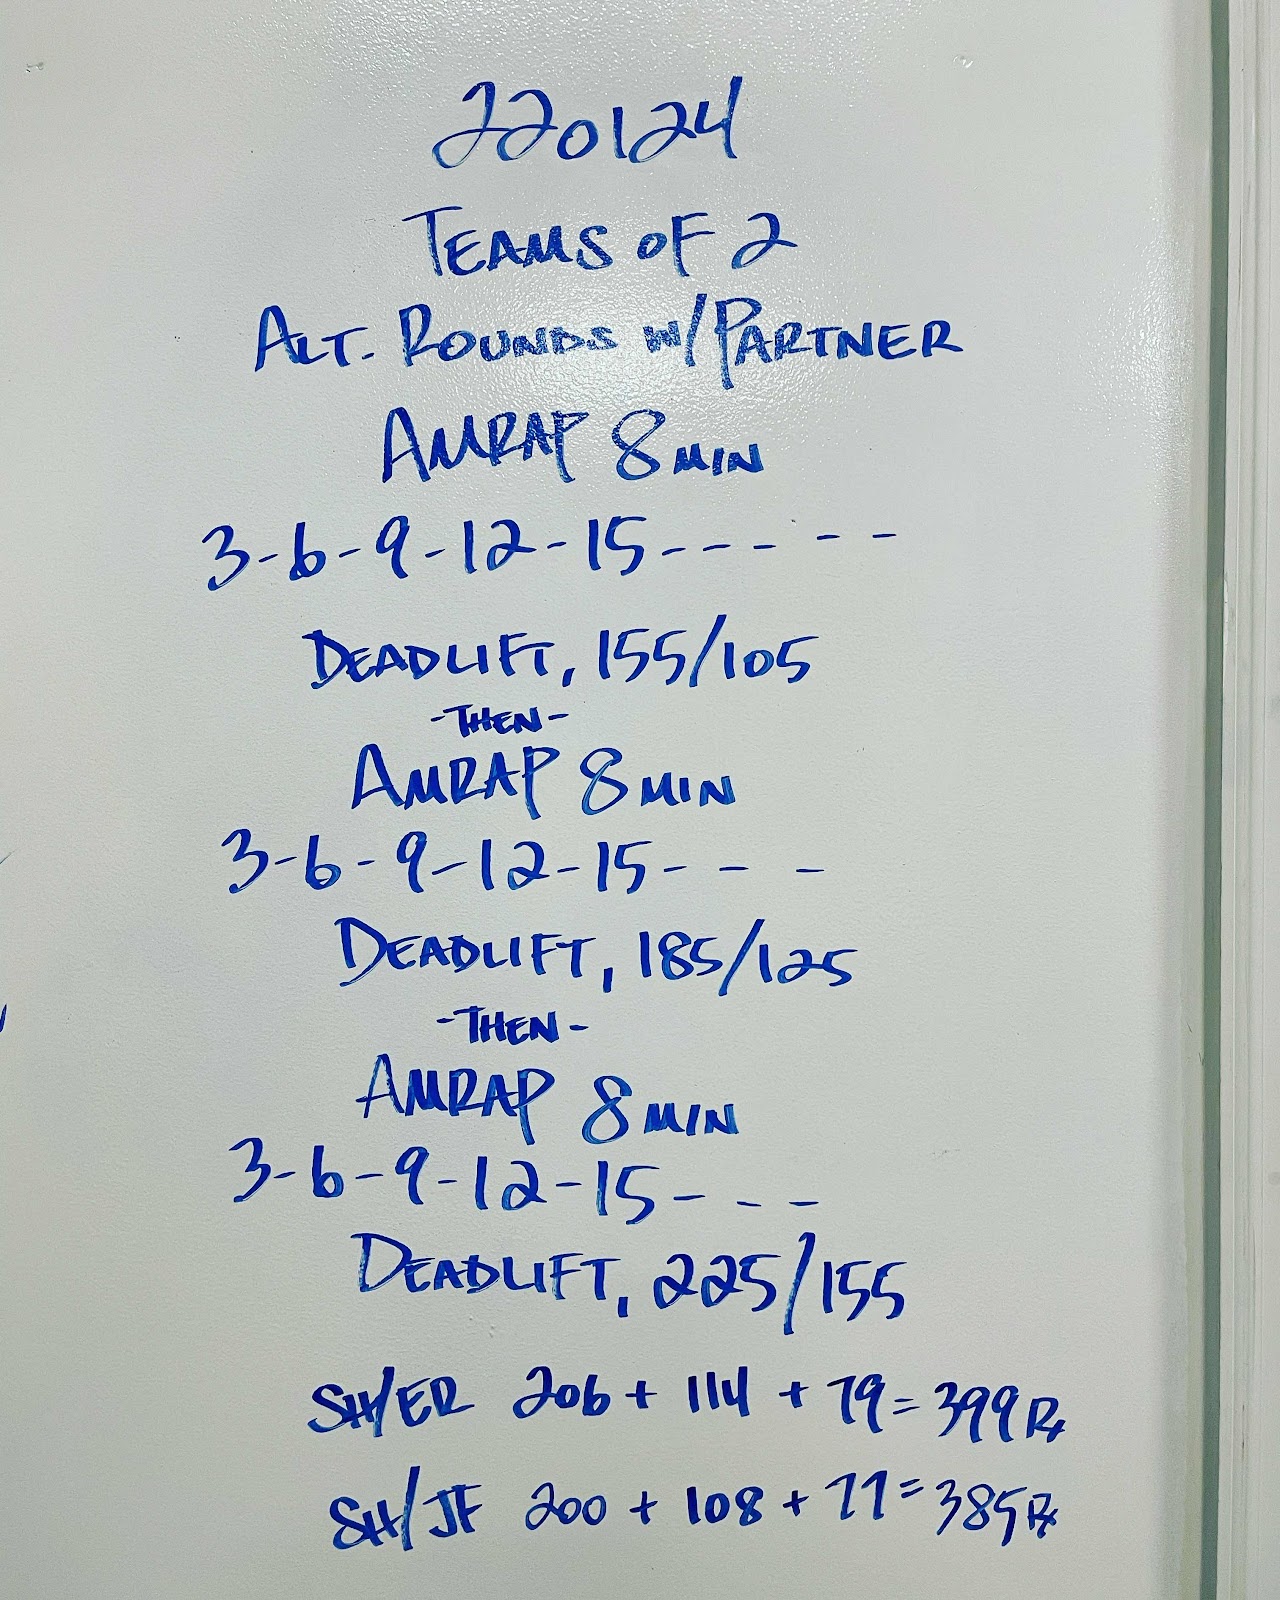 220124
TEAMS OF 2
ALT. ROUNDS W/PARTNER
AMRAP 8 MIN
3-6-9-12-15-----
DEADLIFT, 155/105
-THEN-
AMRAP 8 MIN
3-6-9-12-15---
DEADLIFT, 185/125
-THEN-
AMRAP 8 MIN
3-6-9-12-15---
DEADLIFT, 225/155
SH/ER 206 + 114 + 79 = 399 Rx
SH/JF 200 + 108 + 77 = 385 Rx